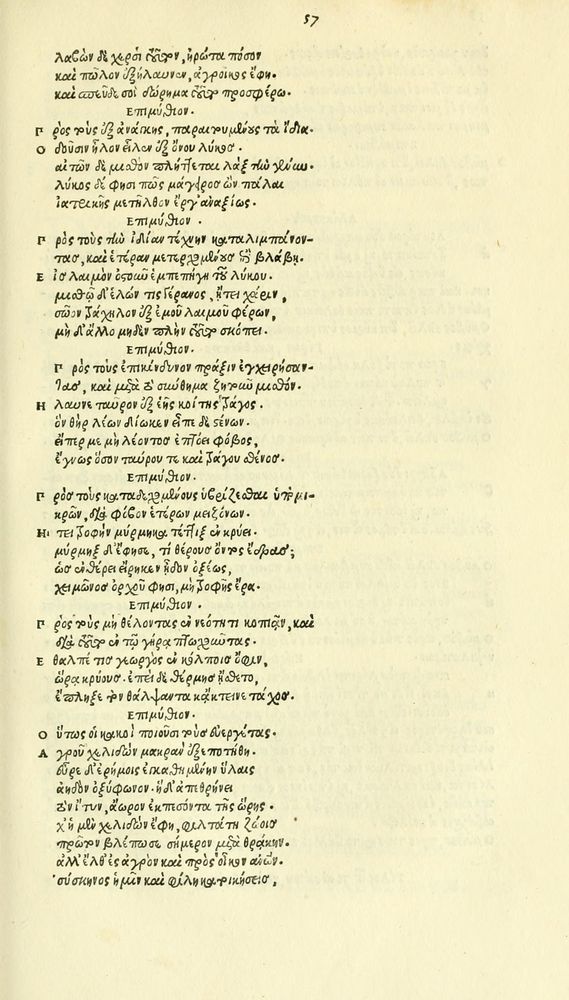 57
λαβὼν δὲ χερσὶ τοῦτον, ἠρώτα πόσον
καὶ πῶλον ἐξήλαυνεν, ἀγροῖκος ἔφη.
καὶ σπεῦδε σοὶ δώρημα τοῦτον προσφέρω.
ΕΠΙΜΥΘΙΟΝ.
Πρὸς τοὺς ἐξ ἀνάγκης, παραιτουμένους τὰ ἴδια.
Ὀδοῦσιν ἧλον εἷλεν ἐξ ὄνου λύκος.
αἰτῶν δὲ μισθὸν πλήττεται λὰξ τὴν γένυν.
λύκος δέ φησι πῶς μάγειρος ὢν πάλαι
ἰατρικῆς μετῆλθον ἔργ᾽ ἀναξίως.
ΕΠΙΜΥΘΙΟΝ.
Πρὸς τοὺς τὴν ἰδίαν τέχνην καταλιμπάνον-
τας, καὶ ἑτέραν μετερχομένους ἐπὶ βλάβῃ.
Εἰς λαιμὸν ὀστοῦν ἐμπεπήγη τοῦ λύκου.
μισθῷ δ᾽ ἑλών τις γέρανος, ᾔτει χάριν,
σῶον τράχηλον ἐξ ἐμοῦ λαιμοῦ φέρων,
μὴ δ᾽ ἄλλο μηδὲν πλὴν τοῦτον σκόπει.
ΕΠΙΜΥΘΙΟΝ.
Πρὸς τοὺς ἐπικίνδυνον πρᾶξιν ἐγχειρήσαν-
τας, καὶ μετὰ τὸ σωθῆναι ζητοῦν μισθόν.
Ἤλαυνε ταῦρον ἐξ ἑῆς κοίτης τράγος.
ὃν θὴρ λέων δίωκεν εἶπε δὲ στένων.
εἴπερ με μὴ λέοντος ἐπτόει φόβος,
ἔγνως ὅσον ταύρου τε καὶ τράγου σθένος.
ΕΠΙΜΥΘΙΟΝ.
Πρὸς τοὺς καταδεχομένους ὑβρίζεσθαι ὑπὸ μι-
κρῶν, διὰ φόβον ἑτέρων μειζόνων.
ᾜτει τροφὴν μύρμηκα τέττιξ ἐν κρύει.
μύρμηξ δ᾽ ἔφησε, τί θέρους ὄντος ἔδρας;
ὡς ἐν θέρει εἴρηκεν ᾖδον ὀξέως,
χειμῶνος ὀρχοῦ φησι, μὴ τροφῆς ἔρα.
ΕΠΙΜΥΘΙΟΝ.
Πρὸς τοὺς μὴ θέλοντας ἐν νεότητι κοπιᾷν, καὶ
διὰ τοῦτον ἐν τῷ γήρα πτωχῶντας.
Ἔθαλπέ τις γεωργὸς ἐν κόλποις ὄφιν,
ὥρα κρύους. ἐπεὶ δὲ θέρμης ᾔσθετο,
ἔπληξε τὸν θάλψαντα κἄκτεινε τάχος.
ΕΠΙΜΥΘΙΟΝ.
Οὕτως οἱ κακοὶ ποιοῦσι τοὺς εὐεργέτας.
Ἀγροῦ χελιδὼν μακρὰν ἐξεποτήθη.
εὗρε δ᾽ ἐρήμοις ἐγκαθημένην ὕλαις
ἀηδόν᾽ ὀξύφωνον. ἡ δ᾽ ἀπεθρήνει
τὸν ἴτυν, ἄωρον ἐκπεσόντα τῆς ὥρης.
χ᾽ ἡ μὲν χελιδὼν ἔφη, φιλτάτη ζώοις
πρῶτον βλέπω σε σήμερον μετὰ θρᾴκην.
ἀλλ᾽ ἔλθ᾽ ἐς ἀγρὸν καὶ πρὸς οἶκον ἀνθρώπων.
σύσκηνος ἡμῖν καὶ φίλη κατοικήσεις,